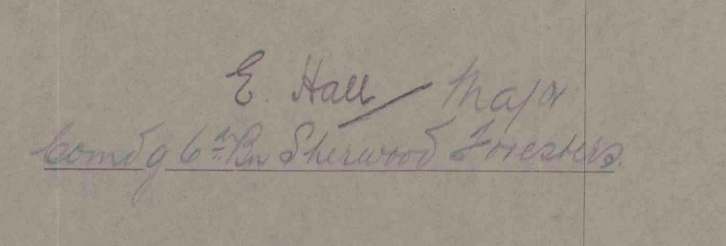 E. Hall / Major
Comdg 6th Bn Sherwood Foresters.